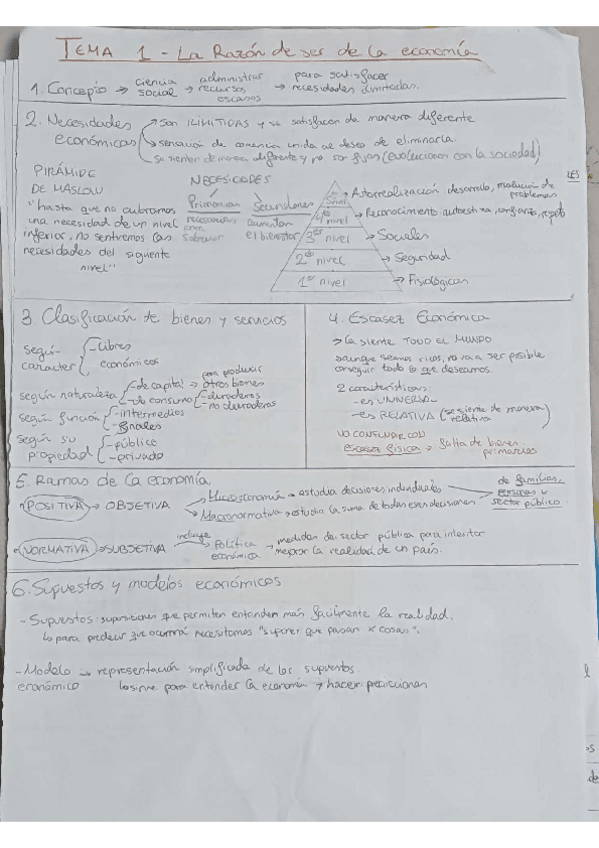 TEMA 1 - La Razón de ser de la economía
1. Concepto → ciencia social → administrar recursos escasos → para satisfacer necesidades ilimitadas.
2. Necesidades económicas
→ son ILIMITADAS y se satisfacen de manera diferente
→ sensación de carencia unida al deseo de eliminarla.
→ se sienten de manera diferente y no son fijas (evolucionan con la sociedad)
PIRÁMIDE DE MASLOW
"hasta que no cubramos
una necesidad de un nivel
inferior, no sentiremos las
necesidades del siguiente
nivel"
NECESIDADES
Primarias
necesarias para sobrevivir
Secundarias
aumentan el bienestar
5º nivel → Autorrealización, desarrollo, resolución de problemas
4º nivel → Reconocimiento, autoestima, confianza, respeto
3er nivel → Sociales
2do nivel → Seguridad
1er nivel → Fisiológicas
3. Clasificación de bienes y servicios
según caracter
- Libres
- económicos
según naturaleza
- de capital → para producir otros bienes
- de consumo
- duraderos
- no duraderos
según función
- intermedios
- finales
según su propiedad
- público
- privado
4. Escasez Económica
→ la siente TODO EL MUNDO
aunque seamos ricos, no va a ser posible
conseguir todo lo que deseamos.
2 características:
- es UNIVERSAL
- es RELATIVA (se siente de manera relativa)
NO CONFUNDIR CON
escasez física → falta de bienes primarios
5. Ramas de la economía
POSITIVA → OBJETIVA
→ Microeconomía → estudia decisiones individuales → de familias, personas y sector público
→ Macronormativa → estudia la suma de todas esas decisiones
NORMATIVA → SUBJETIVA incluye → Política económica → medidas del sector público para intentar
mejorar la realidad de un país.
6. Supuestos y modelos económicos
- Supuestos: suposiciones que permiten entender más fácilmente la realidad.
↳ para predecir que ocurrirá necesitamos "suponer que pasan x cosas".
- Modelo económico → representación simplificada de los supuestos.
↳ sirve para entender la economía y hacer predicciones